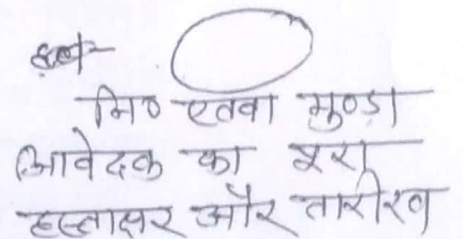 नि० एतवा मुण्डा
आवेदक का पूरा
हस्ताक्षर और तारीख